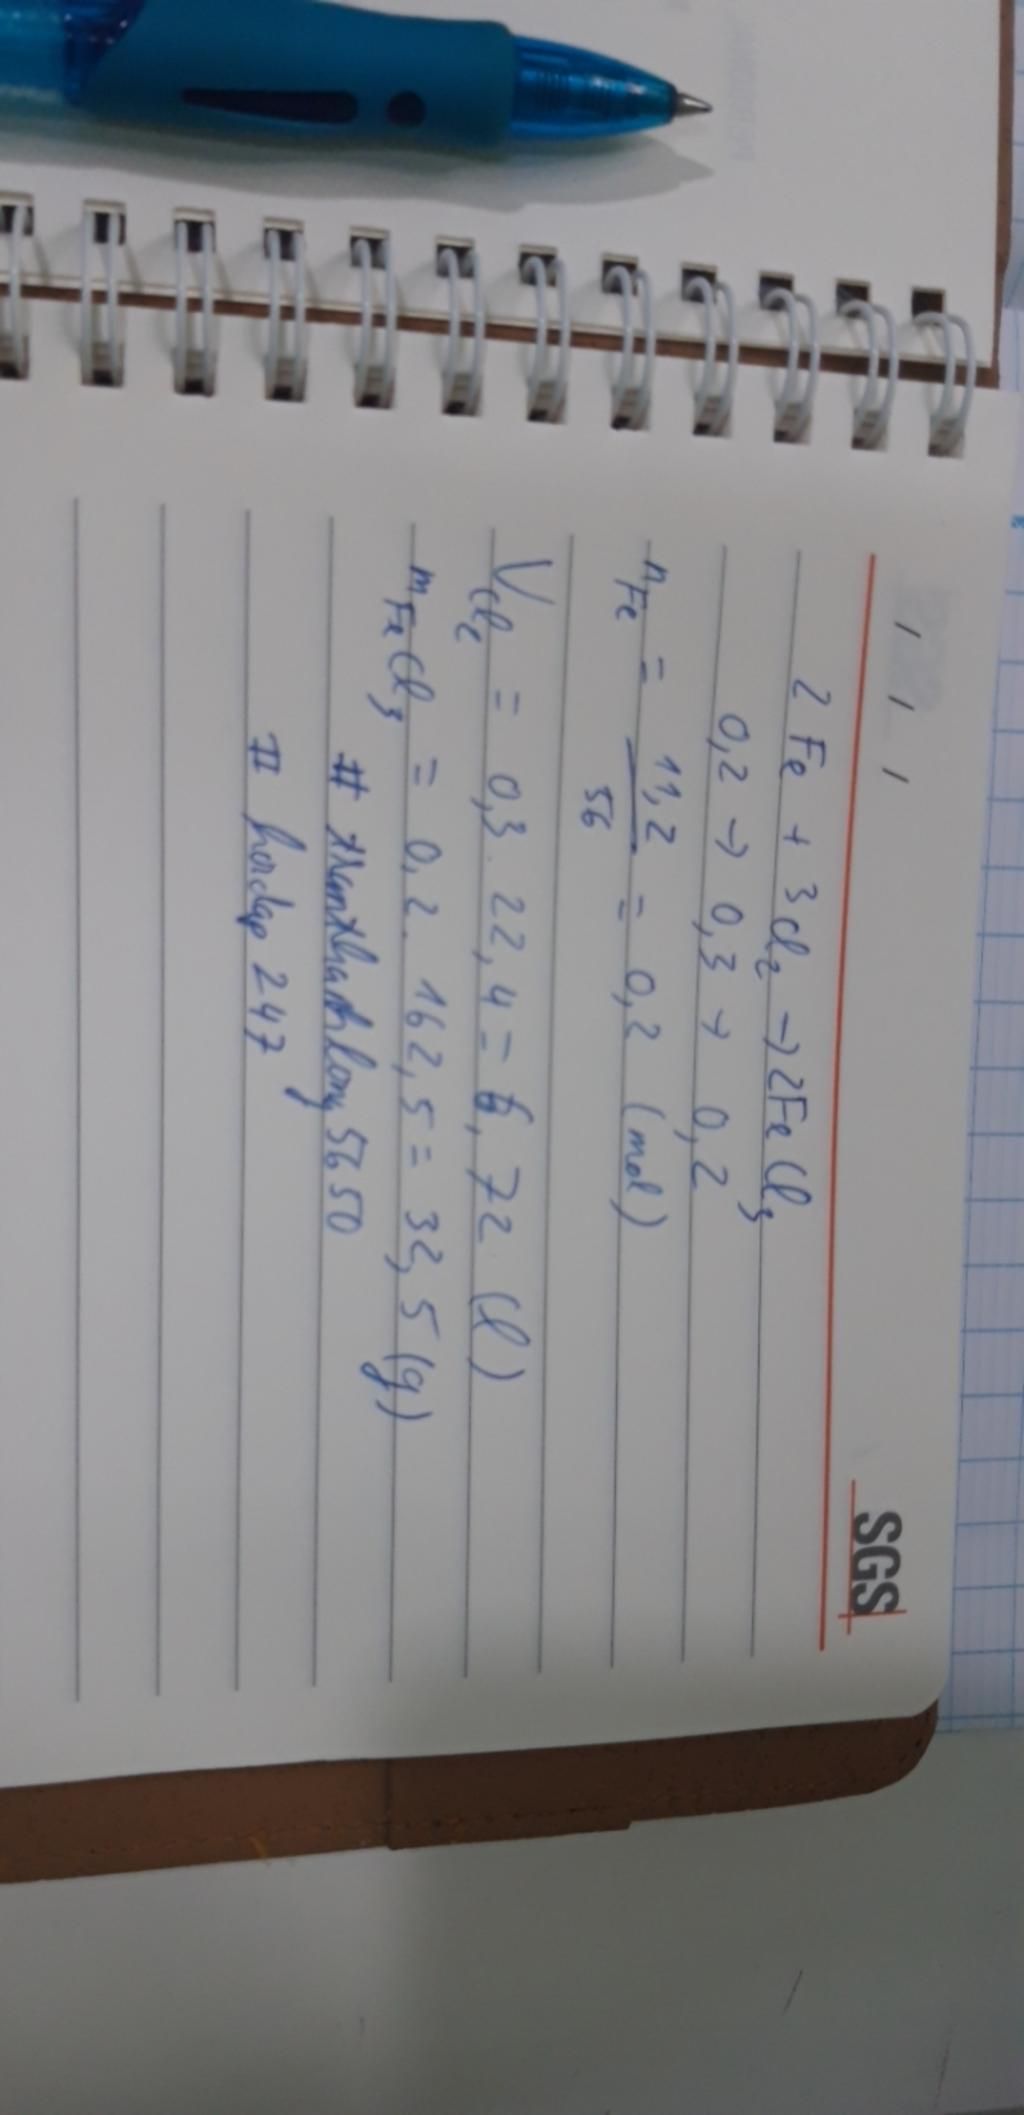 SGS
/ / /
2 Fe + 3 Cl2 → 2FeCl3
0,2 → 0,3 → 0,2
nFe = 11,2 / 56 = 0,2 (mol)
VCl2 = 0,3. 22,4 = 6,72 (l)
mFeCl3 = 0,2. 162,5 = 32,5 (g)
# thanhlong5650
# hoidap247